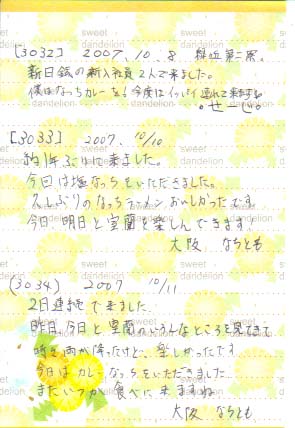 [3032] 2007.10.8
新日鉄の新入社員2人で来ました。
僕はなっちカレーを! 今度はイッパイ連れて来ます
[3033] 2007. 10/10
約1年ぶりに来ました。
今回は塩なっちをいただきました。
久しぶりのなっちラーメン おいしかったです
今日、明日と室蘭を楽しんできます。
大阪 ならとも
(3034) 2007 10/11
2日連続で来ました
昨日、今日と室蘭のいろんなところを見てきて
時々雨が降ったけど、楽しかったです
今日はカレーなっちをいただきました
またいつか食べに来ますね
大阪 ならとも
sweet dandelion